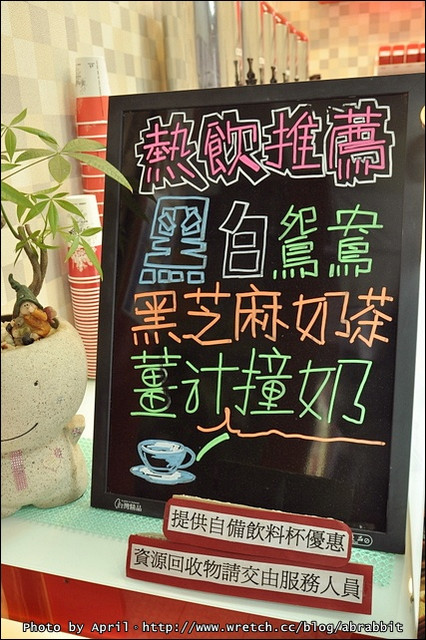 熱飲推薦
黑白鴛鴦
黑芝麻奶茶
薑汁撞奶
提供自備飲料杯優惠
資源回收物請交由服務人員
Photo by April - http://www.wretch.cc/blog/abrabbit